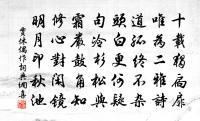 十載獨扃扉
唯為二雅詩
道孤終不雜
頭白更何疑
句冷杉松與
霜嚴鼓角知
修心對閑鏡
明月印秋池
貫休偶作詞典網書